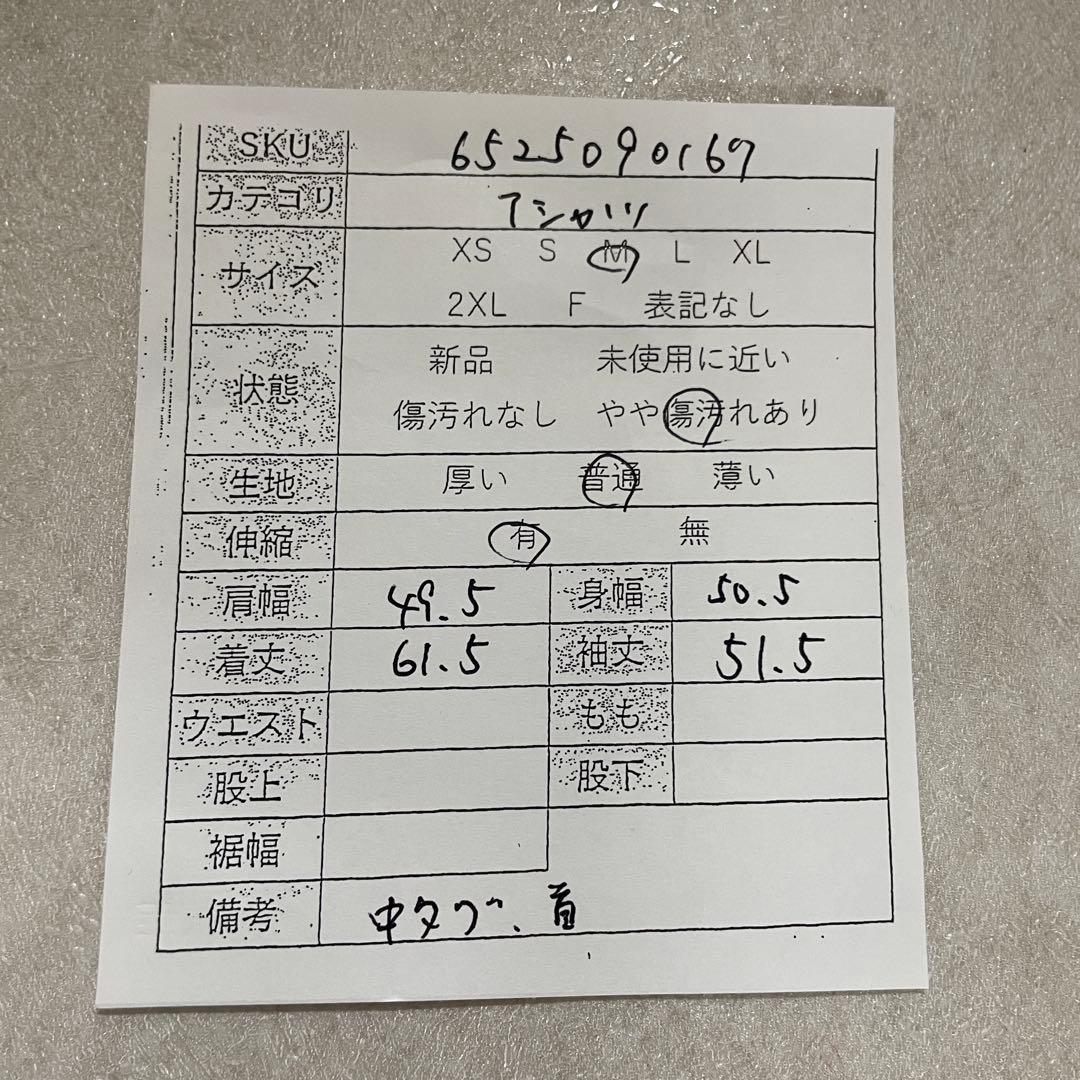 SKU 6525090169
カテゴリ Tシャツ
サイズ XS S M L XL
2XL F 表記なし
状態 新品 未使用に近い
傷汚れなし やや傷汚れあり
生地 厚い 普通 薄い
伸縮 有 無
肩幅 49.5 身幅 50.5
着丈 61.5 袖丈 51.5
ウエスト もも
股上 股下
裾幅
備考 中タグ、首